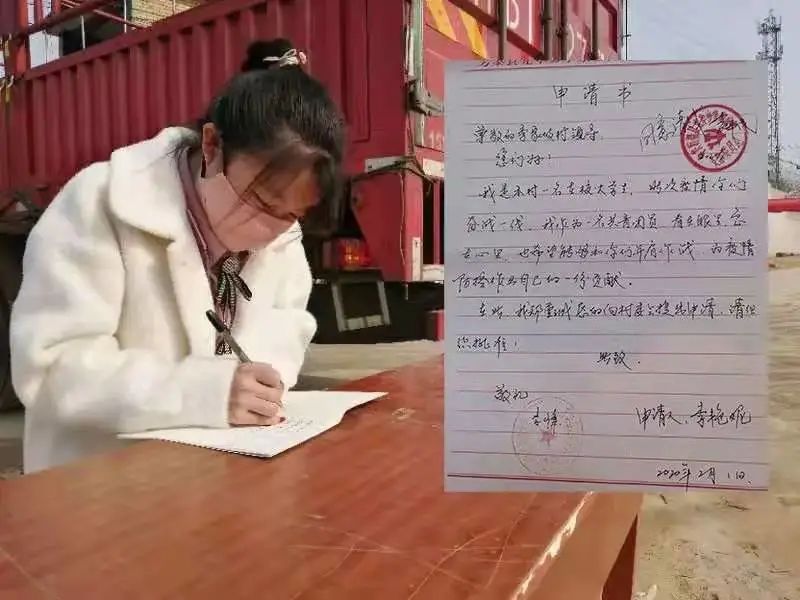 申请书
尊敬的李家坡村领导:
您们好!
我是本村一名在校大学生,此次疫情你们
奋战一线,我作为一名共青团员 看在眼里 急
在心里,也希望能够和你们并肩作战 为疫情
防控作出自己的一份贡献。
在此,我郑重诚恳的向村委会提出申请,请组
织批准!
此致
敬礼
申请人:李艳妮
2020年2月1日